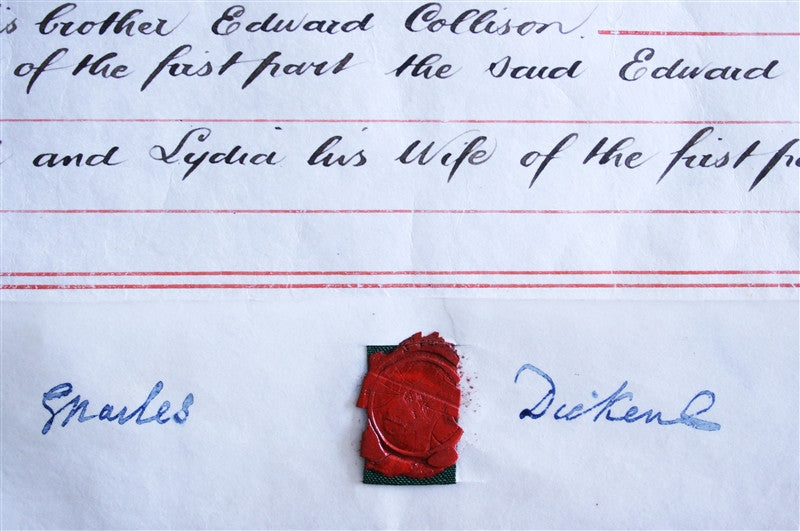 s brother Edward Collison.
of the first part the said Edward
and Lydia his Wife of the first pa
Charles Dickens